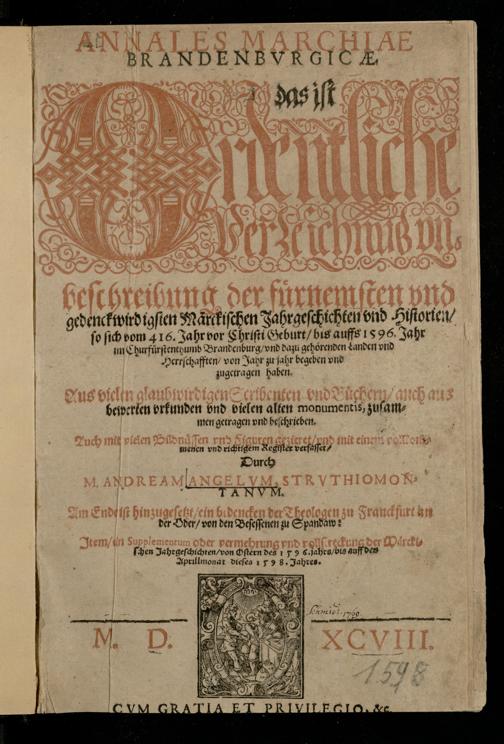 ANNALES MARCHIAE
BRANDENBVRGICÆ,
das ist
Ordentliche
Verzeichnuß vnd
beschreibung der fürnemsten vnd
gedenckwirdigsten Märckischen Jahrgeschichten vnd Historien/
so sich vom 416. Jahr vor Christi Geburt/ bis auffs 1596. Jahr
im Churfürstenthumb Brandenburg/ vnd dazu gehörenden Landen vnd
Herrschafften/ von Jahr zu jahr begeben vnd
zugetragen haben.
Aus vielen glaubwirdigen Scribenten vnd Büchern/ auch aus
bewerten vrkunden vnd vielen alten monumentis, zusam-
men getragen vnd beschrieben.
Auch mit vielen Bildnüssen vnd Figuren gezieret/ vnd mit einem
menen vnd richtigem Register verfasset/
Durch
M. ANDREAM ANGELVM, STRVTHIOMON-
TANVM.
Am Ende ist hinzugesetzt/ ein bedencken der Theologen zu Franckfurt an
der Oder/ von den Besessenen zu Spandaw:
Item/ ein Supplementum oder vermehrung vnd vollstreckung der Märcki-
schen Jahrgeschichten/ von Ostern des 1596. jahrs/ bis auff den
Aprillmonat dieses 1598. Jahres.
1769.
M. D. XCVIII.
1598
CVM GRATIA ET PRIVILEGIO, &c.